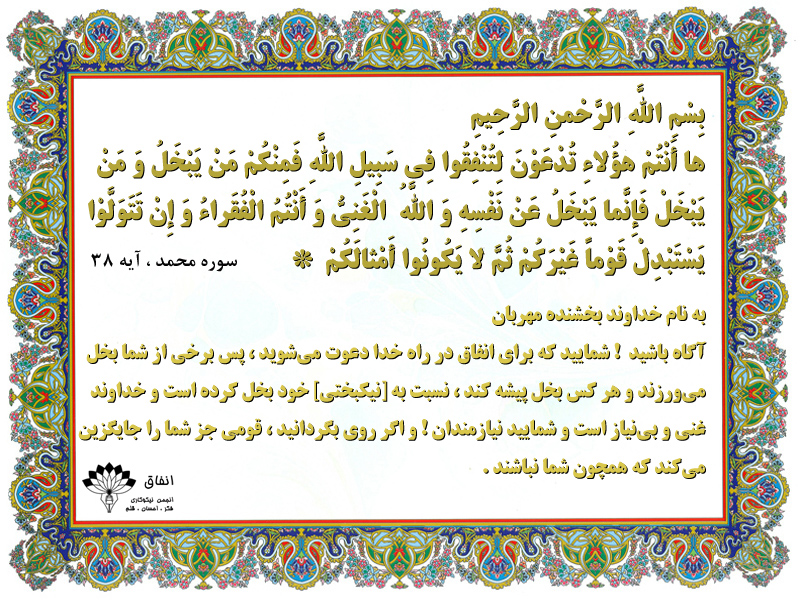 بِسْمِ اللَّهِ الرَّحْمنِ الرَّحِيمِ
ها أَنْتُمْ هؤُلاءِ تُدْعَوْنَ لِتُنْفِقُوا فِي سَبِيلِ اللَّهِ فَمِنْكُمْ مَنْ يَبْخَلُ وَ مَنْ
يَبْخَلْ فَإِنَّما يَبْخَلُ عَنْ نَفْسِهِ وَ اللَّهُ الْغَنِيُّ وَ أَنْتُمُ الْفُقَراءُ وَ إِنْ تَتَوَلَّوْا
يَسْتَبْدِلْ قَوْماً غَيْرَكُمْ ثُمَّ لا يَكُونُوا أَمْثالَكُمْ ❋ سوره محمد ، آیه ۳۸
به نام خداوند بخشنده مهربان
آگاه باشید ! شمایید که برای انفاق در راه خدا دعوت می‌شوید ، پس برخی از شما بخل
می‌ورزند و هر کس بخل پیشه کند ، نسبت به [نیکبختی] خود بخل کرده است و خداوند
غنی و بی‌نیاز است و شمایید نیازمندان ! و اگر روی بگردانید ، قومی جز شما را جایگزین
می‌کند که همچون شما نباشند .
انفاق
انجمن نیکوکاری
فکر ، احسان ، قلم